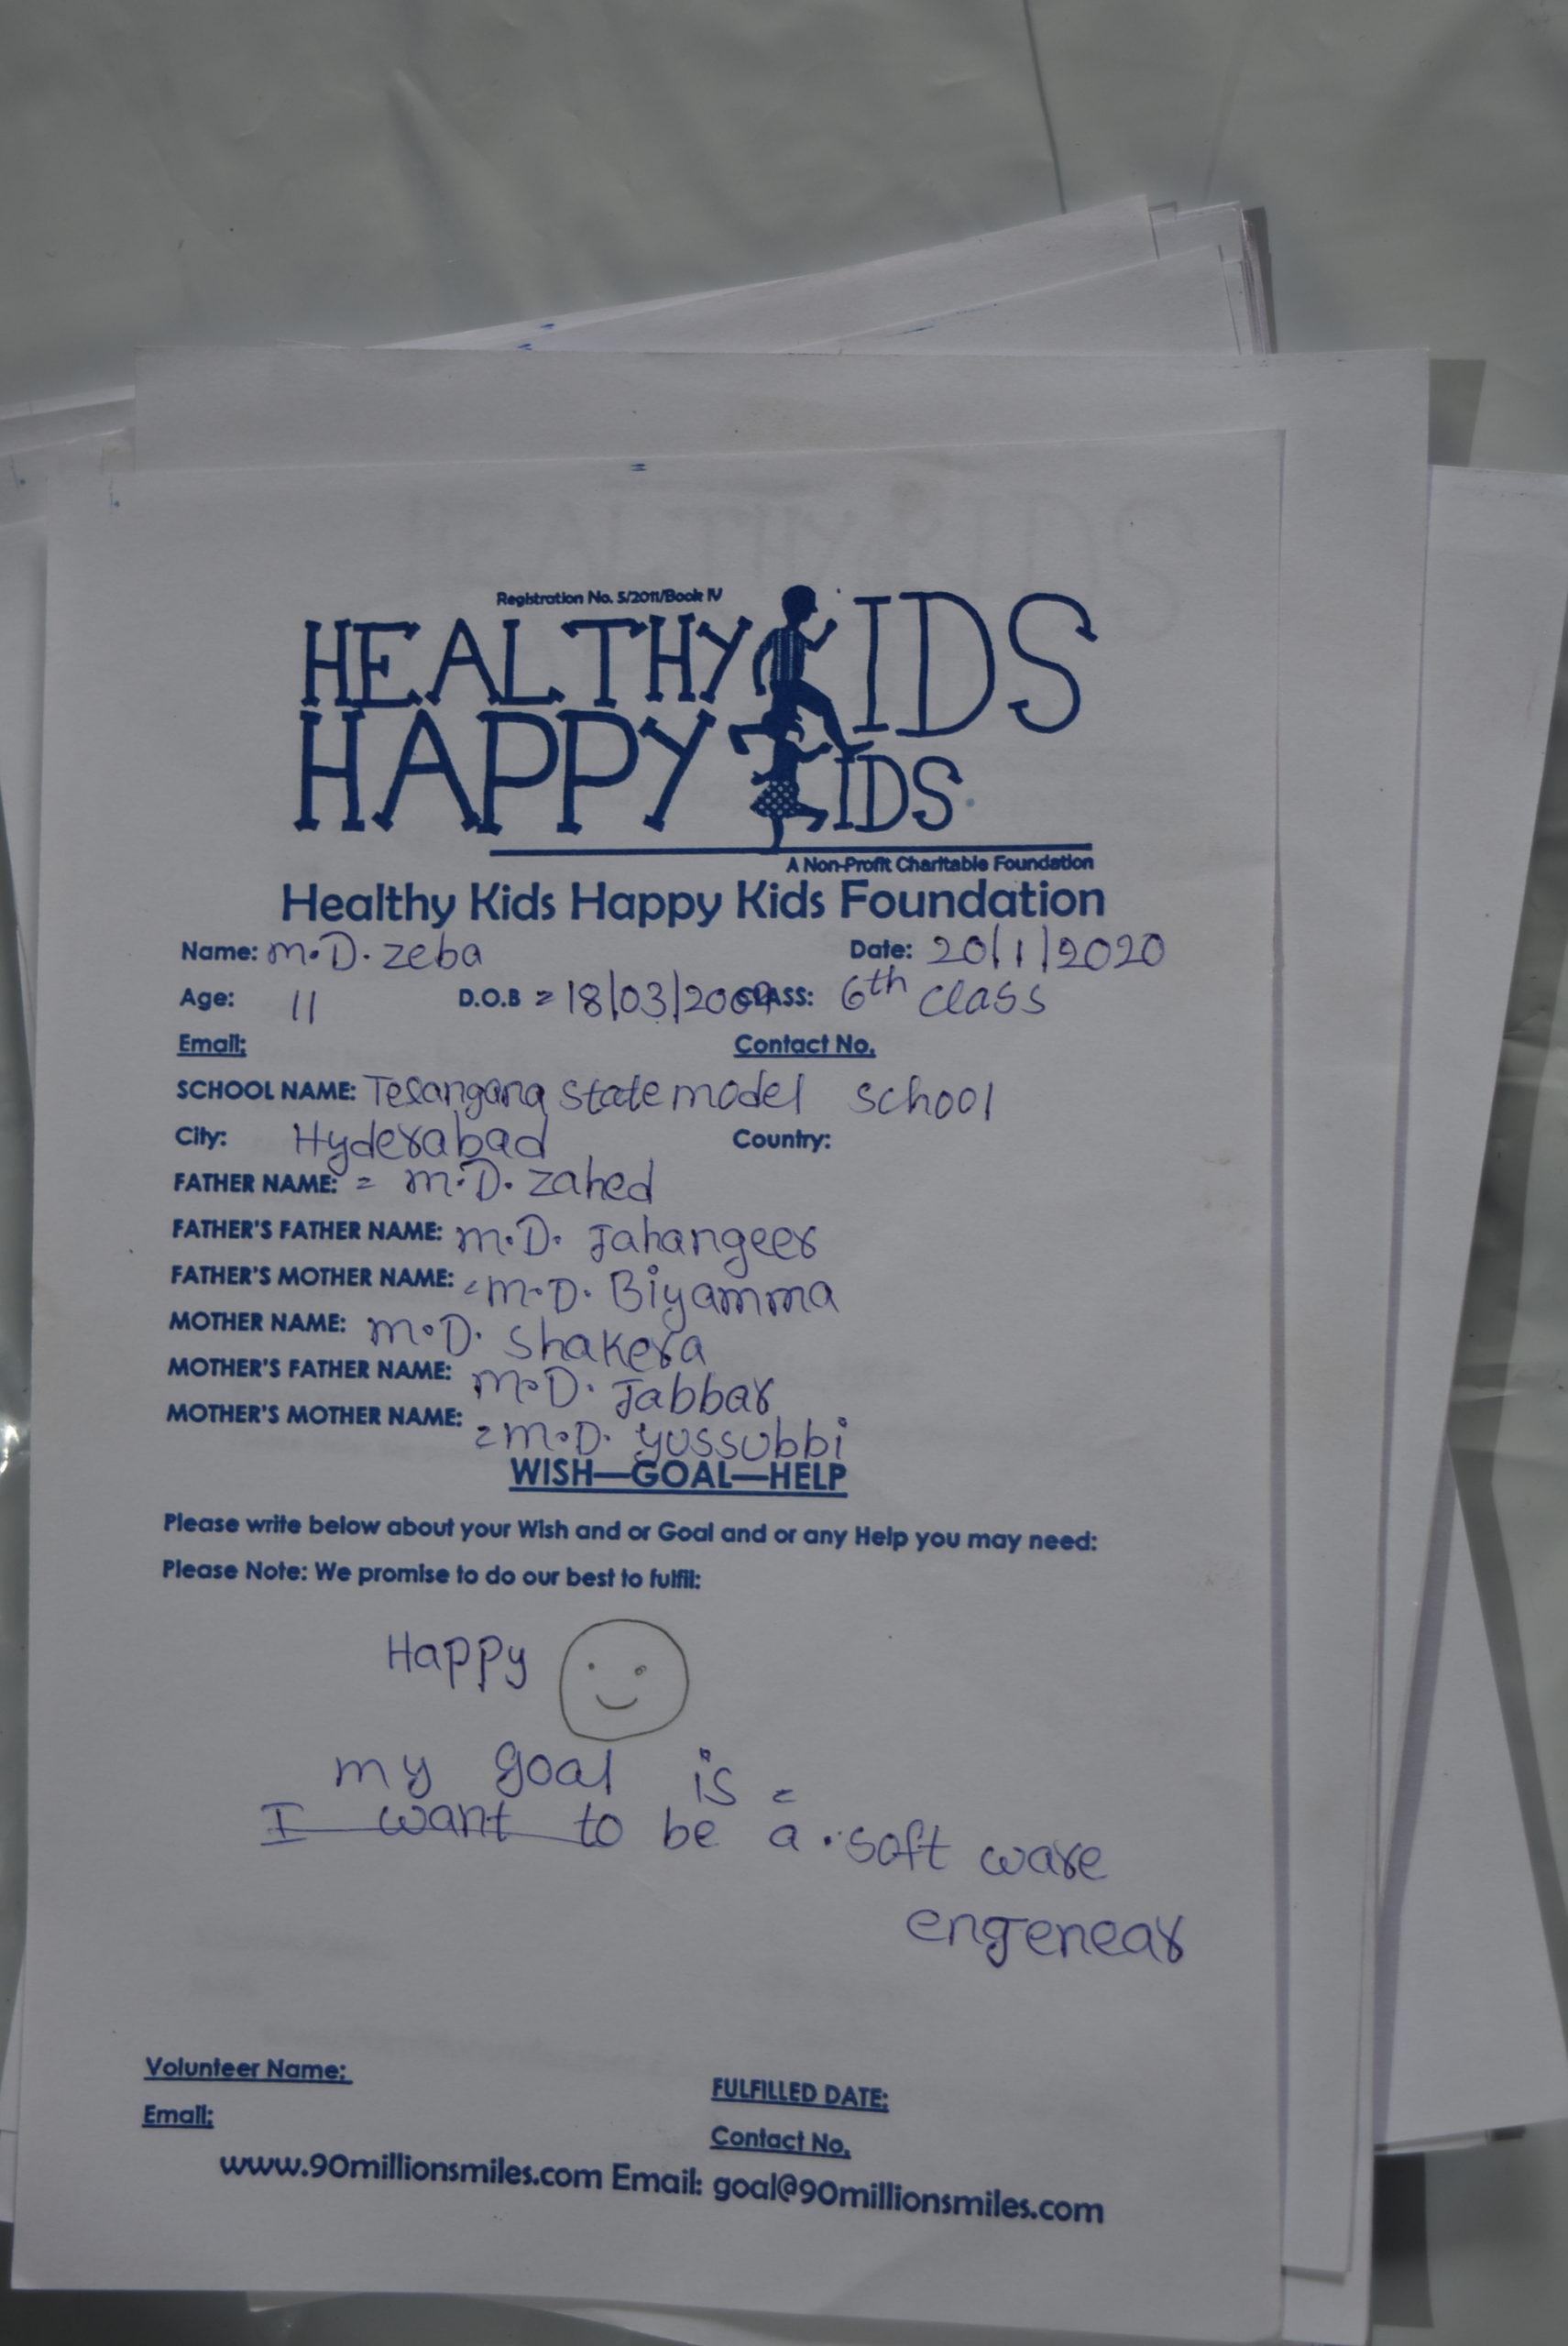 Registration No. 5/2011/Book IV
HEALTHY KIDS
HAPPY KIDS
A Non-Profit Charitable Foundation
Healthy Kids Happy Kids Foundation
Name: M.D. zeba Date: 20/1/2020
Age: 11 D.O.B = 18/03/2009 CLASS: 6th class
Email: Contact No.
SCHOOL NAME: Telangana state model school
City: Hyderabad Country:
FATHER NAME: = M.D. zahed
FATHER'S FATHER NAME: M.D. Jahangeer
FATHER'S MOTHER NAME: = M.D. Biyamma
MOTHER NAME: M.D. shakera
MOTHER'S FATHER NAME: M.D. Jabbar
MOTHER'S MOTHER NAME: = M.D. yussubbi
WISH—GOAL—HELP
Please write below about your Wish and or Goal and or any Help you may need:
Please Note: We promise to do our best to fulfil:
Happy
my goal is =
I want to be a . soft ware
engenear
Volunteer Name: FULFILLED DATE:
Email: Contact No.
www.90millionsmiles.com Email: goal@90millionsmiles.com